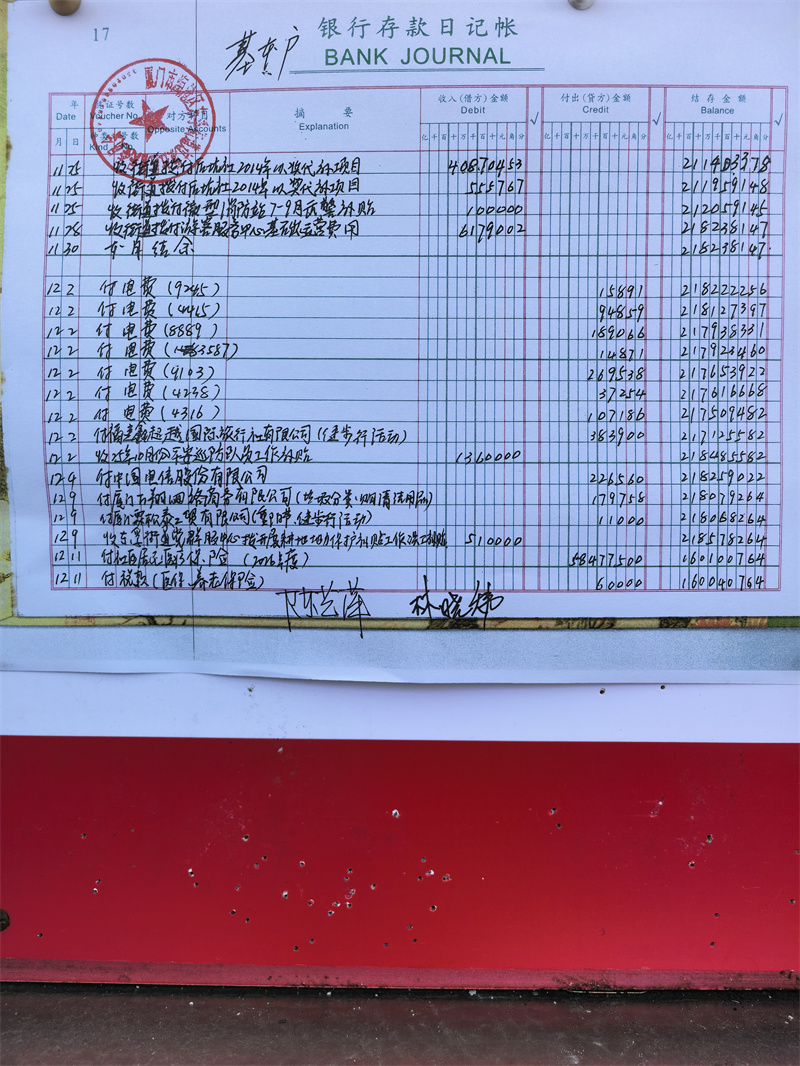 17
基本户
银行存款日记帐
BANK JOURNAL
年 Date 凭证号数 Voucher No. 对方科目 Opposite Accounts 摘要 Explanation 收入(借方)金额 Debit √ 付出(贷方)金额 Credit √ 结存金额 Balance √
月 日 种类 Kind 号数 No. 亿千百十万千百十元角分 亿千百十万千百十元角分 亿千百十万千百十元角分
11 25 收街道拨付后坑社2014年以奖代补项目 40870453 211403378
11 25 收街道拨付后坑社2014年以奖代补项目 555767 211959148
11 25 收街道拨付微型消防站7-9月 补贴 100000 212059145
11 28 收街道拨付 服务中心基础运营费用 6179002 218238147
11 30 本年结余 218238147
12 2 付电费(9245) 15891 218222256
12 2 付电费(4415) 94859 218127397
12 2 付电费(8889) 189066 217938331
12 2 付电费( 3587) 14871 217923460
12 2 付电费(9103) 269538 217653922
12 2 付电费(4238) 37254 217616668
12 2 付电费(4316) 107186 217509482
12 2 付福建 国际旅行社有限公司(健步行活动) 383900 217125582
12 2 收25年10月份 巡防队员工作补贴 1360000 218485582
12 9 付中国电信股份有限公司 226560 218259022
12 9 付厦门 商务有限公司(垃圾分类 清洁用品) 179758 218079264
12 9 付厦门 工贸有限公司( 健步行活动) 11000 218068264
12 9 收 街道党群服中心拨开展耕地地力保护补贴工作 510000 218578264
12 11 付社区居民医疗保险金(2026年度) 58477500 160100764
12 11 付税款(医保、养老保险金) 60000 160040764
陈艺萍 林晓纬